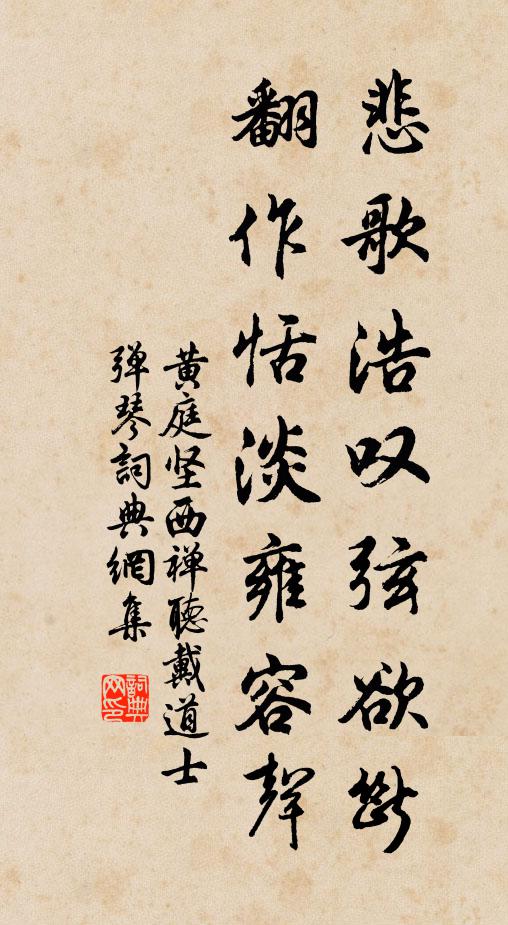 悲歌浩叹弦欲断
翻作恬淡雍容聲
黄庭坚西禅聽戴道士
弹琴詞典網集
詞典网印